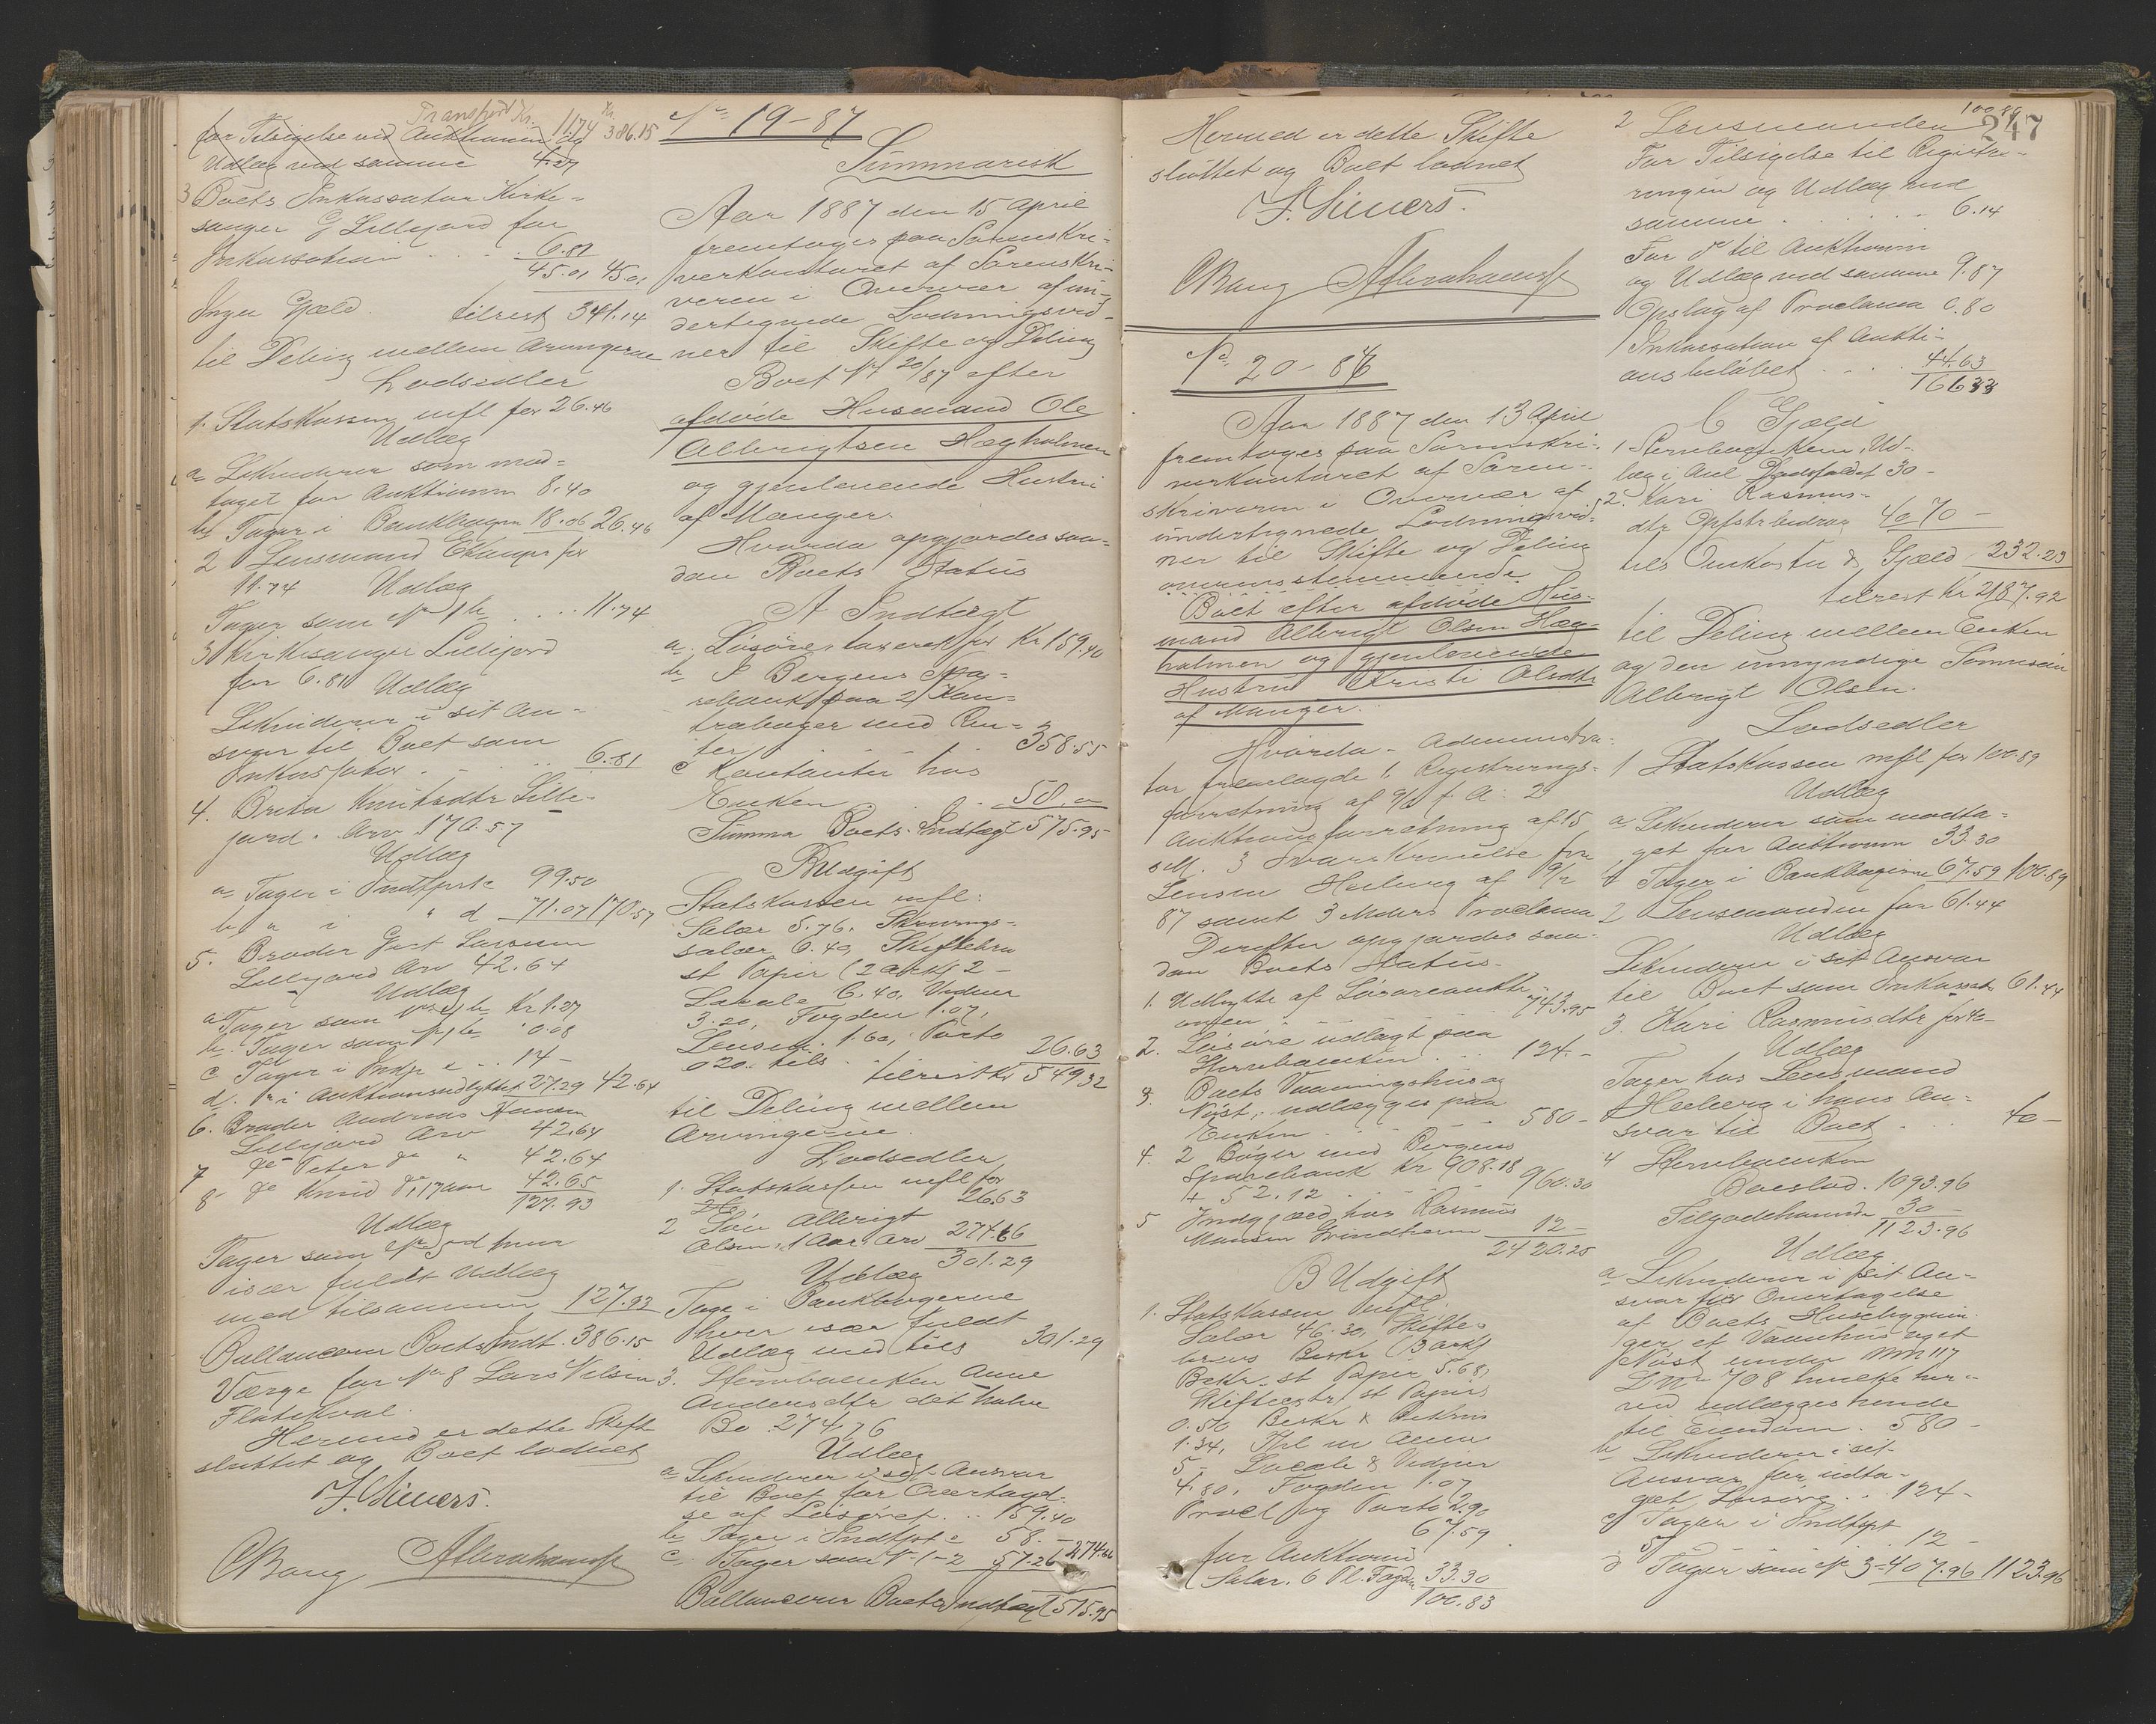 Transport Kr. 11.74 Kr. 386.15
for Tilsigelse ved Auktionen og
Udlæg ved samme 4.27
3 Boets Inkassator Kirke-
sanger G Lillejord for
Inkassation . . . 6.81
45.01 45.01
Ingen Gjæld. tilrest 341.14
til Deling mellem Arvingerne
Lodsedler
1. Statskassen mfl for 26.46
Udlæg
a Likviderer som mod-
taget for Auktionen 8.40
b Tager i Bankbogen 18.06 26.46
2 Lensmand for
11.74 Udlæg
Tager som No 1 b . . . 11.74
3 Kirkesanger Lillejord
for 6.81 Udlæg
Likviderer i sit An-
svar til Boet som
Inkassator . . . 6.81
4. Brita Knutsdtr Lille-
jord. Arv 170.57
Udlæg
a Tager i Indtpost c 99.50
b " i " d 71.07 170.57
5. Broder Gert Larssen
Lillejord Arv 42.64
Udlæg
a Tager som b Kr 1.27
b. Tager som No 1 b " 0.08
c Tager i Indtp e . . 14 -
d. Do i Auktionsudbyttet 27.29 42.64
6. Broder Andreas Hansen
Lillejord Arv 42.64
7 do Peter do " 42.64
8 do Knud do, 17 aar 42.65
127.93
Udlæg
Tager som No 5 d hver
især fuldt Udlæg
med tilsammen 127.93
Ballancerer Boets Indt. 386.15
Værge for No 8 Lars Nilsen
Flatekval.
Hermed er dette Skifte
sluttet og Boet lodnet
F. Siewers.
CBang Abrahamsen
No 19-87
Summarisk
Aar 1887 den 15 April
foretoges paa Sorenskri-
verkontoret af Sorenskri-
veren i Overvær af un-
dertegnede Lodningsvid-
ner til Skifte og Deling
Boet No 20/87 efter
afdøde Husmand Ole
Albrigtsen Hægholmen
og gjenlevende Hustru
af Manger.
Hvorda opgjordes saa-
dan Boets Status
A Indtægt
a. Løsøre taxeret for Kr 159.40
b I Bergens Spa-
rebank paa 2 Kon-
trabøger med Ren-
ter 358.55
c Kontanter hos
Enken . . . 58.00
Summa Boets Indtægt 575.95
B Udgift
Statskassen mfl:
Salær 5.76, Skrivnings-
salær 6.40, Skiftebrev
st Papir (2 ark) 2 -
Lokale 6.40, Vidner
3.20, Fogden 1.07,
Lensm. 1.60, Porto
0 20. tils. 26.63
tilrest Kr 549.32
til Deling mellem
Arvingerne.
Lodsedler
1. Statskassen mfl for
26.63
2 Søn Albrigt
Olsen, 1 Aar, Arv 274.66
301.29
Udlæg
Tage i Bankbøgerne
hver især fuldt
Udlæg med tils 301.29
3. Stervboenken Anne
Andersdtr det halve
Bo 274.66
Udlæg
a Likviderer i sit Ansvar
til Boet for Overtagel-
se af Løsøret. . . 159.40
b Tager i Indtpt c 58. -
c Tager som No 1-2 57.26 274.66
Ballancerer Boets Indtægt 575.95
Hermed er dette Skifte
sluttet og Boet lodnet
F. Siewers.
CBang Abrahamsen
No 20-86
Aar 1887 den 13 April
foretoges paa Sorenskri-
verkontoret af Soren-
skriveren i Overvær af
undertegnede Lodningsvid-
ner til Skifte og Deling
overensstemmende
Boet efter afdøde Hus-
mand Albrigt Olsen Hæg-
holmen og gjenlevende
Hustru Kristi Olsdtr
af Manger.
Hvorda Administra-
tor fremlagde 1 Registrerings-
forretning af 9/2 f A. 2
Auktionsforretning af 15
s M. 3 Svarskrivelse fra
Lensm Heiberg af 9/2
87 samt 3 Mdrs Proclama
Derefter opgjordes saa-
dan Boets Status.
1. Udbytte af Løsøreaukti-
onen . . . 743.95
2. Løsøre udlagt paa
Stervboenken . . . 124. -
3. Boets Vaaningshus og
Nøst, udlægges paa
Enken . . . 580 -
4. 2 Bøger med Bergens
Sparebank Kr 908.18
+ 52.12 . . . 960.30
5 Indgjæld hos Rasmus
Monsen Grindheim 12 -
2420.25
B Udgift
1. Statskassen mfl.
Salær 46.30, Skifte-
brevs Beskr (3 ark)
Bekr. st Papir 5.68,
Skifteextr st Papir
0.50 Beskr & Bekræft
1.34,
5 - Locale & Vidner
4.80, Fogden 1.07
Procl og Porto 2.90
67.59
for Auktionen
Salær. 6 Pl. Fogden 33.30
100.83
100.89
247
2 Lensmanden
For Tilsigelse til Registre-
ringen og Udlæg ved
samme . . . . . 6.14
For do til Auktionen
og Udlæg ved samme 9.87
Opslag af Proclama 0.80
Inkassation af Aukti-
onsbeløbet . . . . 44.63
166 33
C Gjæld
1 Stervboenken, Ud-
læg i Anl Dødsfaldet 30 -
2. Kari Rasmus-
dtr Opfstrbidrag 40 70 -
tils Omkostn & Gjæld 232.23
tilrest Kr 2187.92
til Deling mellem Enken
og den umyndige Sønnesøn
Albrigt Olsen.
Lodsedler
1 Statskassen mfl for 100.89
Udlæg
a Likviderer som modta-
get for Auktionen 33.30
b Tager i Bankbøgerne 67.59 100.89
2 Lensmanden for 61.44
Udlæg
Likviderer i sit Ansvar
til Boet som Inkassat. 61.44
3. Kari Rasmusdtr for 40 -
Udlæg
Tager hos Lensmand
Heiberg i hans An-
svar til Boet . . . 40 -
4 Stervboenken
Boeslod. 1093.96
Tilgodehavende 30 -
1123.96
Udlæg
a Likviderer i sit An-
svar for Overtagelse
af Boets Husebygnin-
ger et Vaanhus og et
Nøst under MNo 117
LNo 708 hvilke her-
ved udlægges hende
til Eiendom. 580 -
b Likviderer i sit
Ansvar for udta-
get Løsøre . . 124 -
c Tager i Indtpt
5 . . 12 -
d Tager som No 3 - 407.96 1123.96